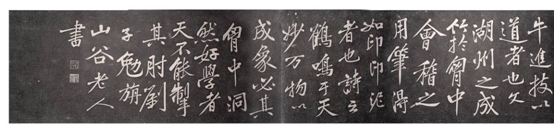 牛進技以
道者也文
湖州之成
竹於胷中
會稽之
用筆得
如印印泥
者也詩云
鶴鳴于天
妙万物以
成象必其
胷中洞
然好學者
天不能掣
其肘劉
子勉旃
山谷老人
書